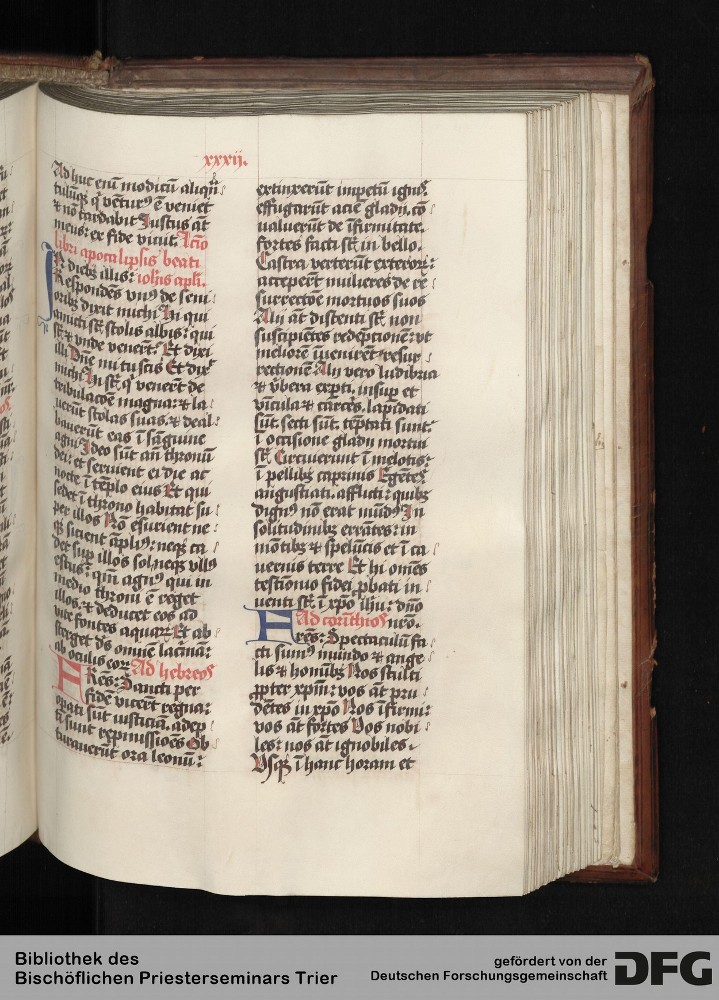 xxxij.
Ad huc enī modicū aliqn̄
tulūqȝ q̄ vētur9 ē veniet
⁊ nō tardabit Justus āt
meus: ex fide vivit. Lc̄io
libri apocalipsis beati
In diebȝ illis: ioh̄is apl̄i.
Respondēs vn9 de seni
oribȝ dixit michi Hii qui
amicti sūt stolis albis: qui
sūt ⁊ vnde venerūt? Et dixi
illi Dn̄e mi tu scis Et dix̄
michi Hii sūt q̄ venerūt de
tribulacōe magna: ⁊ la
uerūt stolas suas. ⁊ deal
bauerūt eas ī sāguine
agni Ideo sūt an̄ thronū
dei: et seruiunt ei die ac
nocte ī tēplo eius Et qui
sedet ī throno habitat su
per illos Nō esurient ne
qȝ sicient āpli9: neqȝ ca
det sup illos sol. neqȝ vll9
estus: qm̄ agn9 qui in
medio throni ē reget
illos. ⁊ deducet eos ad
vite fontes aquaꝝ Et ab
sterget d̄s omnē lacrimā:
ab oculis eoꝝ Ad hebreos
Fres: Sancti per
fidē vicerūt regna:
opati sūt iusticiā. adep
ti sunt repmissiōes Ob
turauerūt ora leonū:
extinxerūt impetū ignis
effugarūt aciē gladij. cō
ualuerūt de īfirmitate.
fortes facti sūt in bello.
Castra verterūt exteroꝝ:
acceperūt mulieres de re
surrectōe mortuos suos
Alij āt distenti sūt non
suscipiētes redēpcionē: vt
meliorē īuenirēt resur
rectionē Alij vero ludibria
⁊ v̄bera expti. insup et
vīcula ⁊ carceres. lapidati
sūt. secti sūt. tēptati sunt:
ī occisione gladij mortui
sūt Circuierunt ī melotis:
ī pellibȝ caprinis Egētes
angustiati. afflicti: quibȝ
dign9 nō erat mūd9 In
solitudinibȝ errātes: in
mōtibȝ ⁊ spelūcis et ī ca
uernis terre Et hi om̄es
testimonio fidei pbati in
uenti sūt. ī xp̄o ih̄u: dn̄o
Ad corinthios nr̄o.
Fres: Spectaculū fa
cti sum9 mundo ⁊ ange
lis ⁊ homībȝ Nos stulti
ppter xp̄m: vos āt pru
dētes in xp̄o Nos īfirmi:
vos āt fortes Vos nobi
les: nos āt ignobiles
Vsqȝ ī hanc horam et
Bibliothek des
Bischöflichen Priesterseminars Trier
gefördert von der
Deutschen Forschungsgemeinschaft
DFG